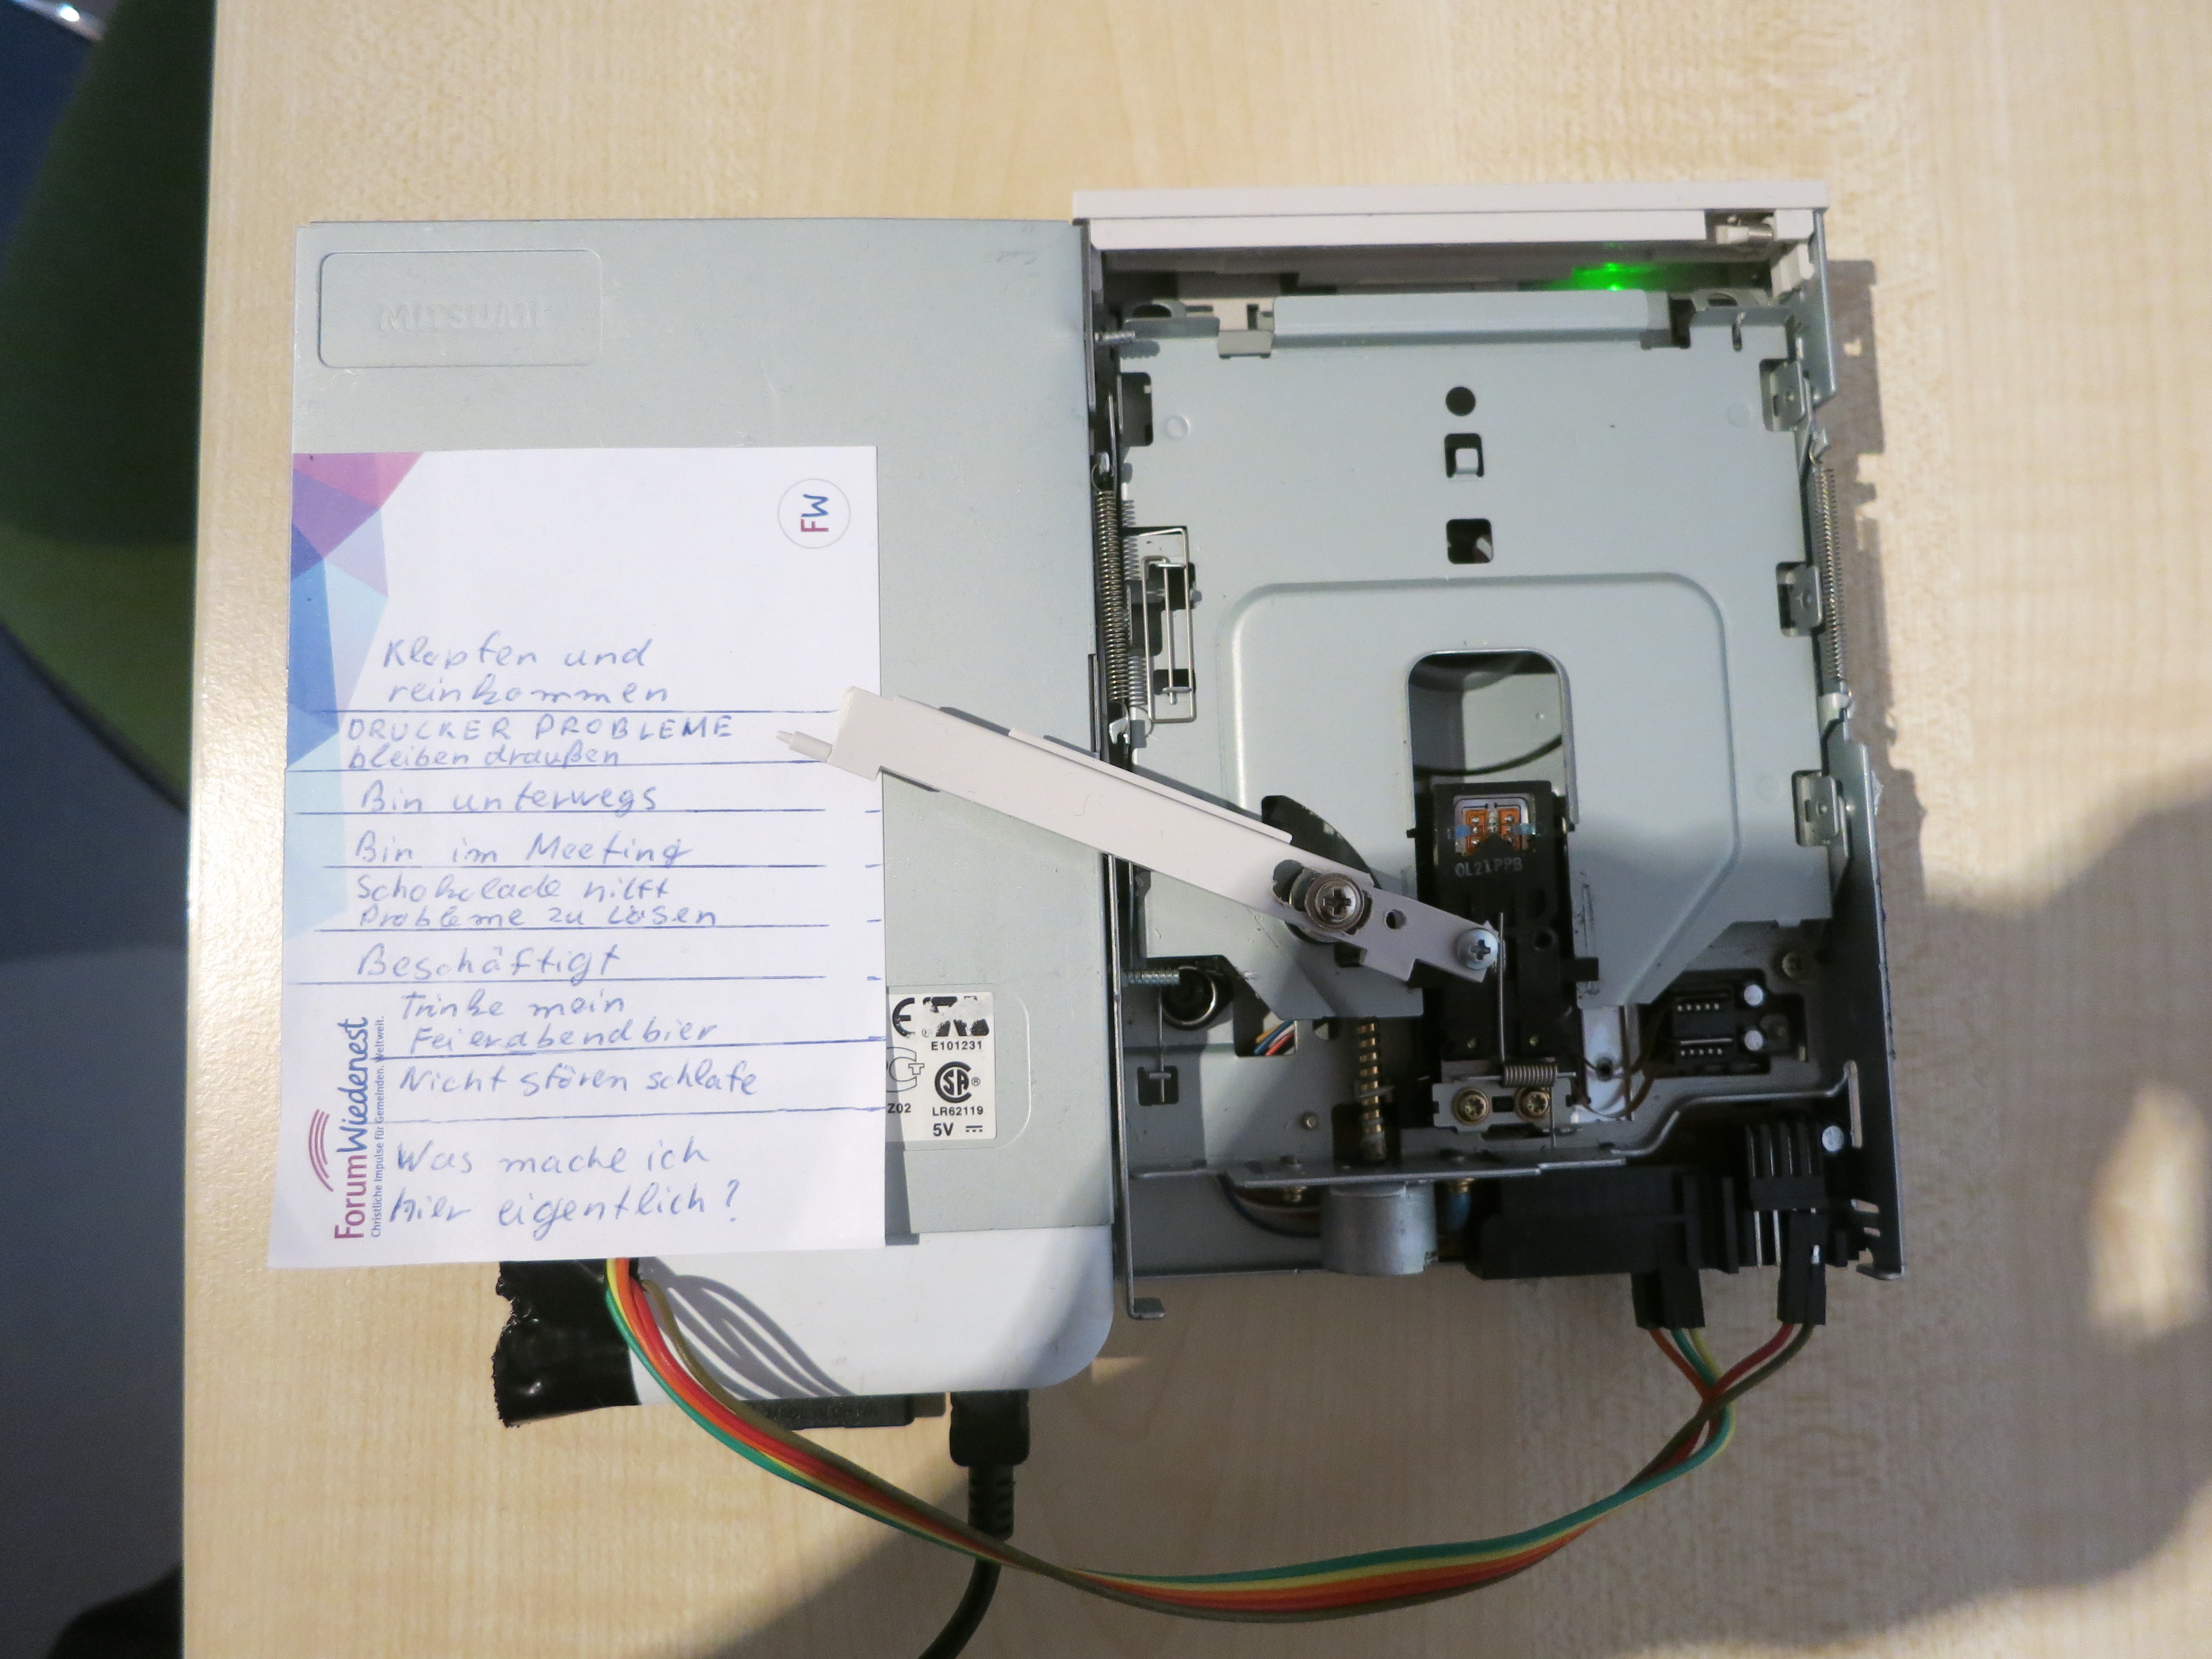 MITSUMI
FW
Klopfen und
reinkommen
DRUCKER PROBLEME
bleiben draußen
Bin unterwegs
Bin im Meeting
Schokolade hilft
Probleme zu Lösen
Beschäftigt
Trinke mein
Feierabendbier
Nicht stören schlafe
Was mache ich
hier eigentlich?
ForumWiedenest
Christliche Impulse für Gemeinden. Weltweit.
E101231
Z02
LR62119
5V
OL21PPB